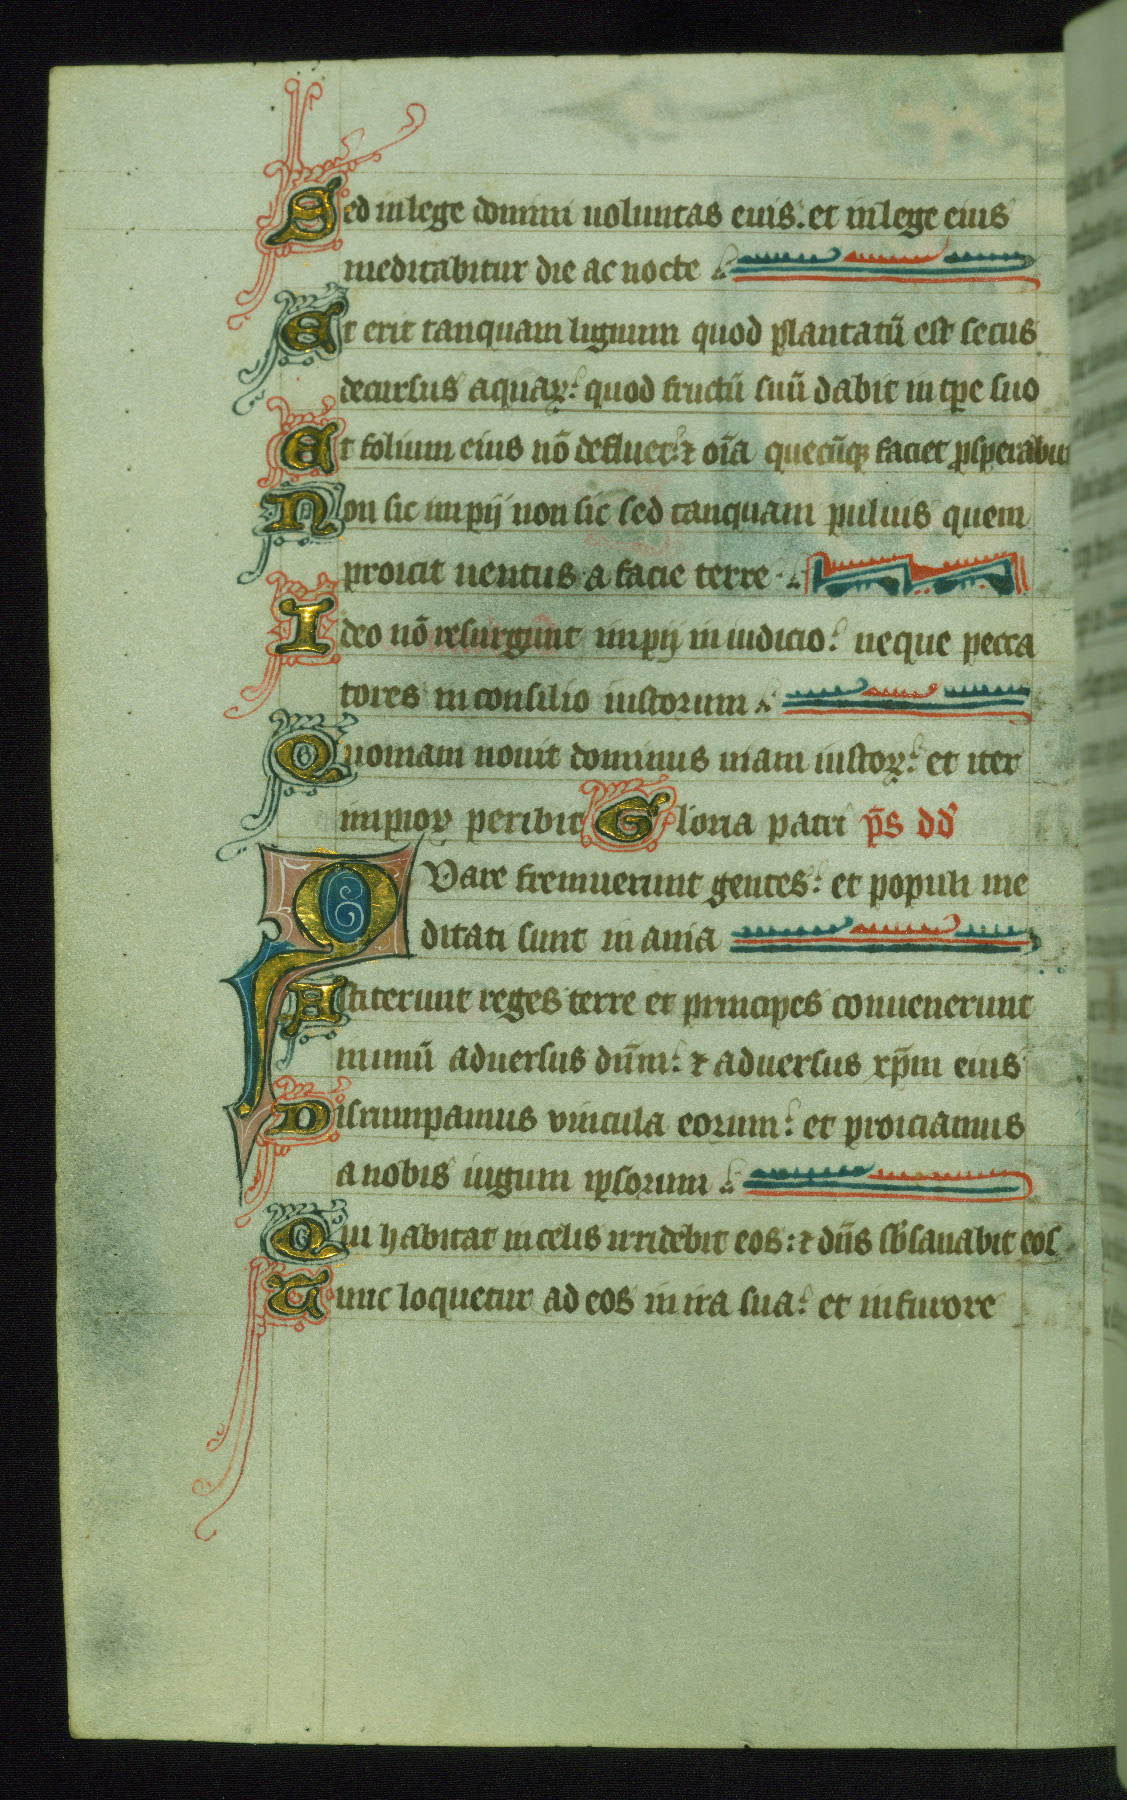 Sed in lege domini uoluntas eius. et in lege eius
meditabitur die ac nocte
Et erit tanquam lignum quod plantatū est secus
decursus aquaꝝ: quod fructū suū dabit in tꝑe suo
Et folium eius nō defluet: ⁊ oīa quecūqꝫ faciet ꝓsperabūt
Non sic impij non sic sed tanquam puluis quem
proicit uentus a facie terre
Ideo nō resurgunt impij in iudicio: neque pecca
tores in consilio iustorum
Quoniam nouit dominus uiam iustoꝝ: et iter
impioꝝ peribit Gloria patri p̄s dd
QVare fremuerunt gentes: et populi me
ditati sunt in ania
Astiterunt reges terre et principes conuenerunt
in unū aduersus dūm: ⁊ aduersus xp̄m eius
Disrumpamus vincula eorum: et proiciamus
a nobis iugum ipsorum
Qui habitat in celis irridebit eos: ⁊ dn̄s sb̄sanabit eos
Tunc loquetur ad eos in ira sua: et in furore